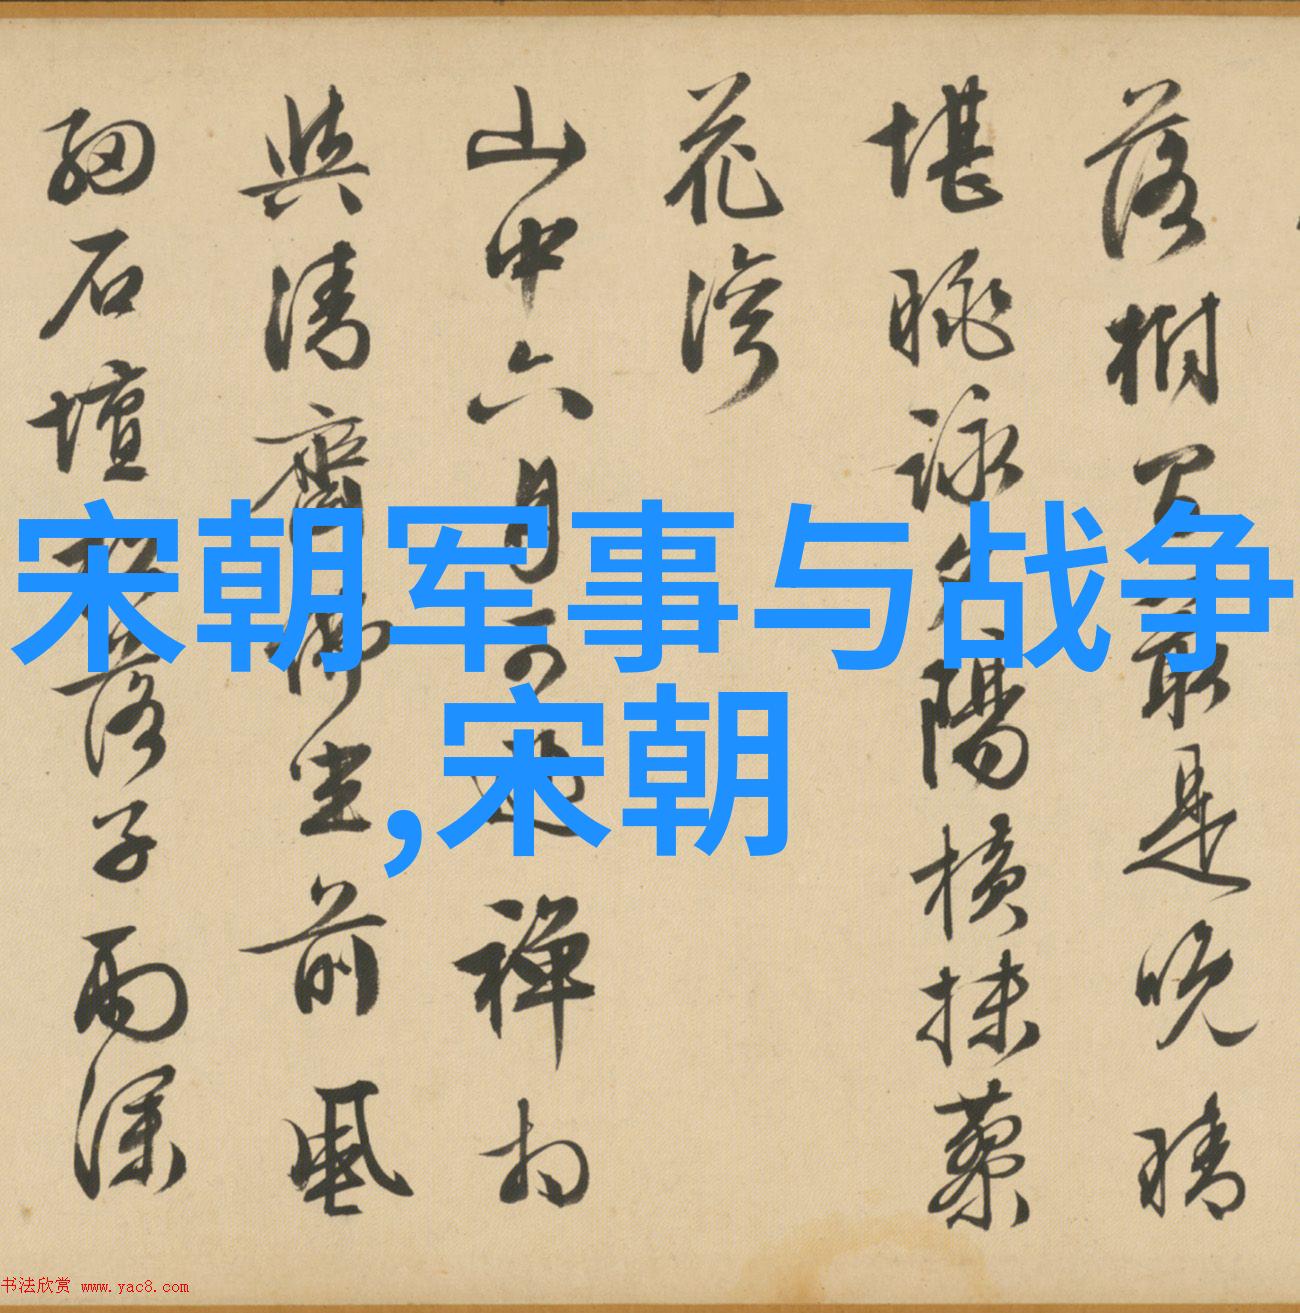 落樹是晚晴
堪眺詠夕陽橫抹藥
花灣
山中六月可禪
與清齋坐前風
細石壇松落子雨深
宋朝军事与战争
,宋朝
书法欣赏 www.yac8.com